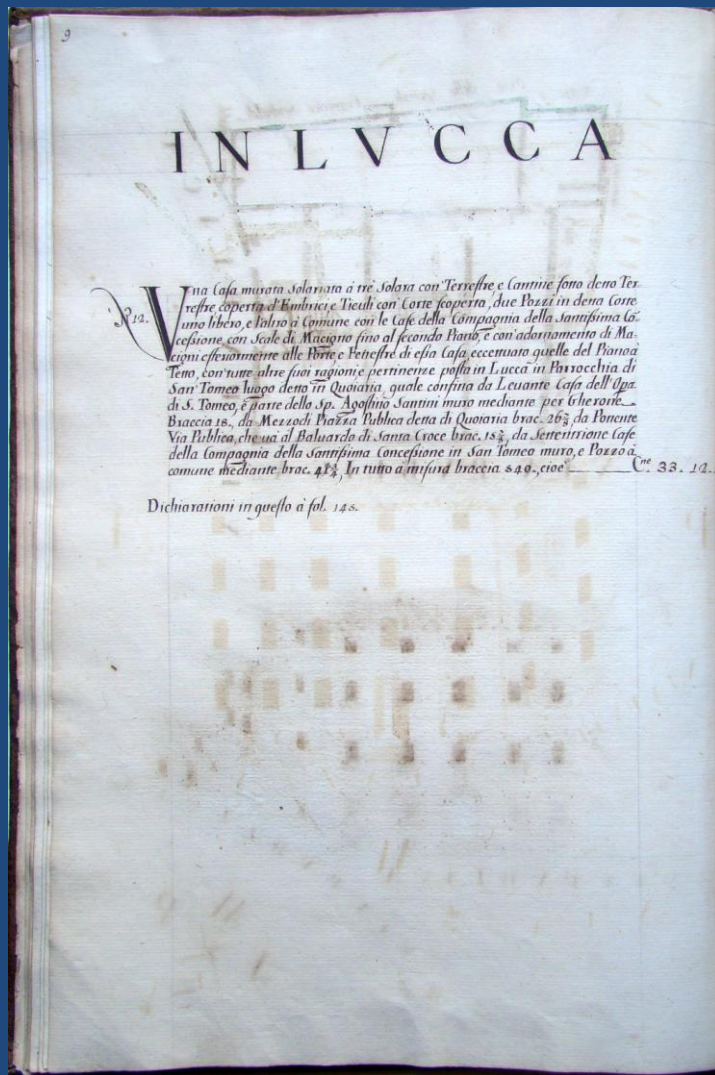 9
IN LVCCA
Vna Casa murata solariata à trè Solara con Terrestre e Cantine sotto detto Ter-
R 12. restre, coperta d'Embrici, e Tieuli con Corte scoperta, due Pozzi in detta Corte
uno libero, e l'altro à Comune con le Case della Compagnia della Santissima Cō-
cessione, con Scale di Macigno fino al secondo Piano, e con adornamento di Ma-
cigni esteriormente alle Porte, e Fenestre di essa Casa, eccettuato quelle del Piano à
Tetto, con tutte altre suoi ragioni e pertinenze posta in Lucca in Parrocchia di
San Tomeo luogo detto in Quoiaria, quale confina da Leuante Casa dell'Opa.
di S. Tomeo, e parte dello Sp. Agostino Santini muro mediante per Gherone
Braccia 18., da Mezzodi Piazza Publica detta di Quoiaria brac. 26⅔, da Ponente
Via Publica, che uà al Baluardo di Santa Croce brac. 18⅔, da Settentrione Case
della Compagnia della Santissima Concessione in San Tomeo muro, e Pozzo à
comune mediante brac. 41¼, In tutto à misura braccia 840., cioè Cne. 33. 12.
Dichiarationi in questo à fol. 148.